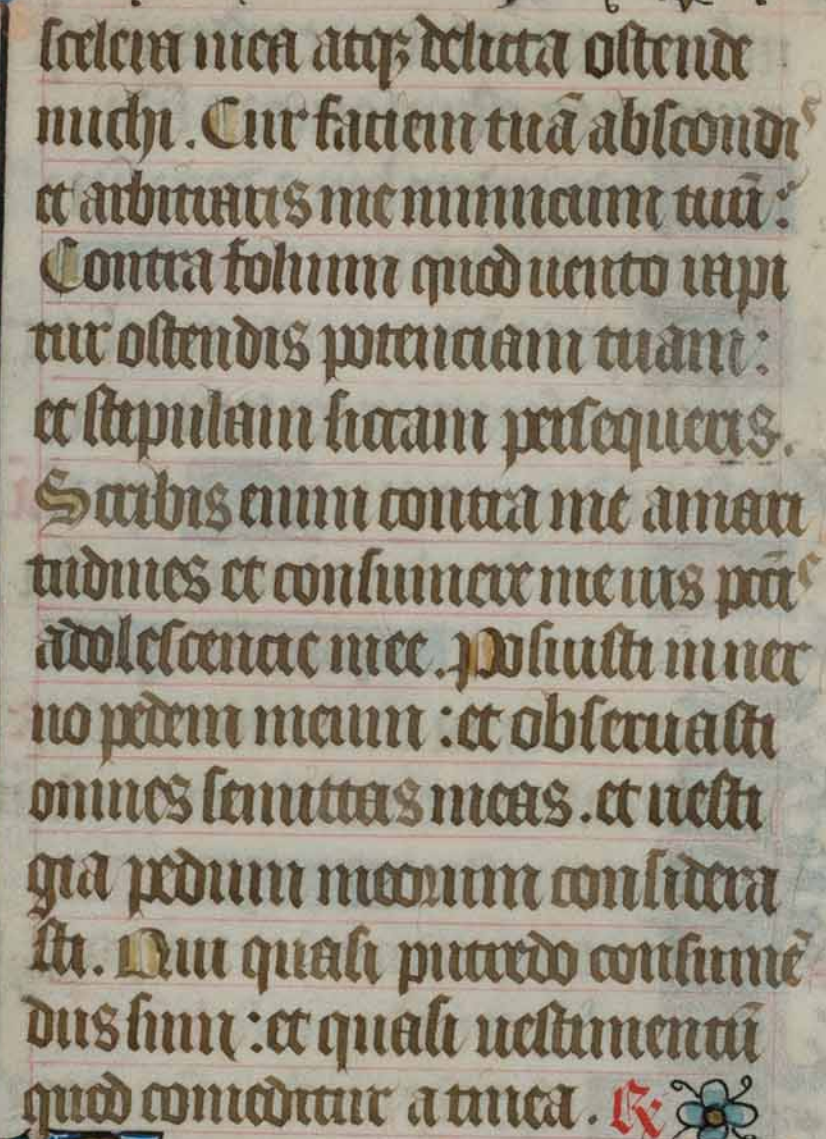 scelera mea atqꝫ delicta ostende
michi. Cur faciem tuā abscondis
et arbitraris me inimicum tuū:
Contra folium quod uento rapi
tur ostendis potenciam tuam:
et stipulam siccam persequeris.
Scribis enim contra me amari
tudines et consumere me uis pccīs
adolescencie mee. Posuisti in ner
uo pedem meum: et obseruasti
omnes semittas meas. et uesti
gia pedum meorum considera
sti. Qui quasi putredo consumē
dus sum: et quasi uestimentū
quod comeditur a tinea. ℟